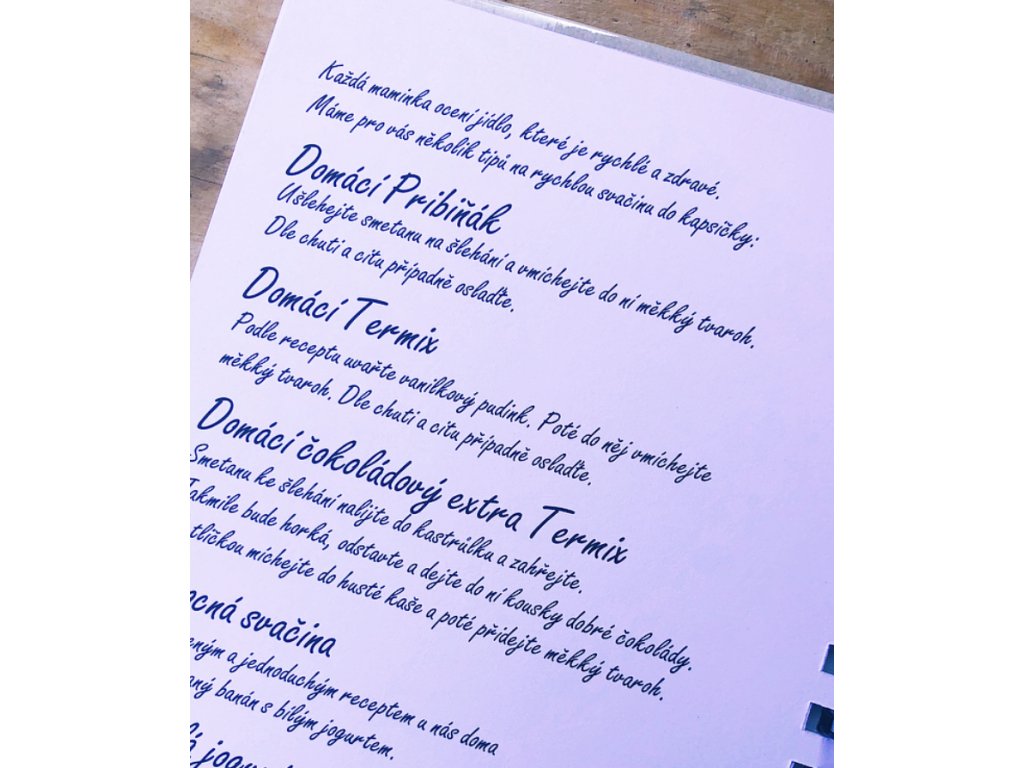 Každá maminka ocení jídlo, které je rychlé a zdravé.
Máme pro vás několik tipů na rychlou svačinu do kapsičky:
Domácí Pribiňák
Ušlehejte smetanu na šlehání a vmíchejte do ní měkký tvaroh.
Dle chuti a citu případně oslaďte.
Domácí Termix
Podle receptu uvařte vanilkový pudink. Poté do něj vmíchejte
měkký tvaroh. Dle chuti a citu případně oslaďte.
Domácí čokoládový extra Termix
Smetanu ke šlehání nalijte do kastrůlku a zahřejte.
Jakmile bude horká, odstavte a dejte do ní kousky dobré čokolády.
míchejte do husté kaše a poté přidejte měkký tvaroh.
svačina
a jednoduchým receptem u nás doma
banán s bílým jogurtem.